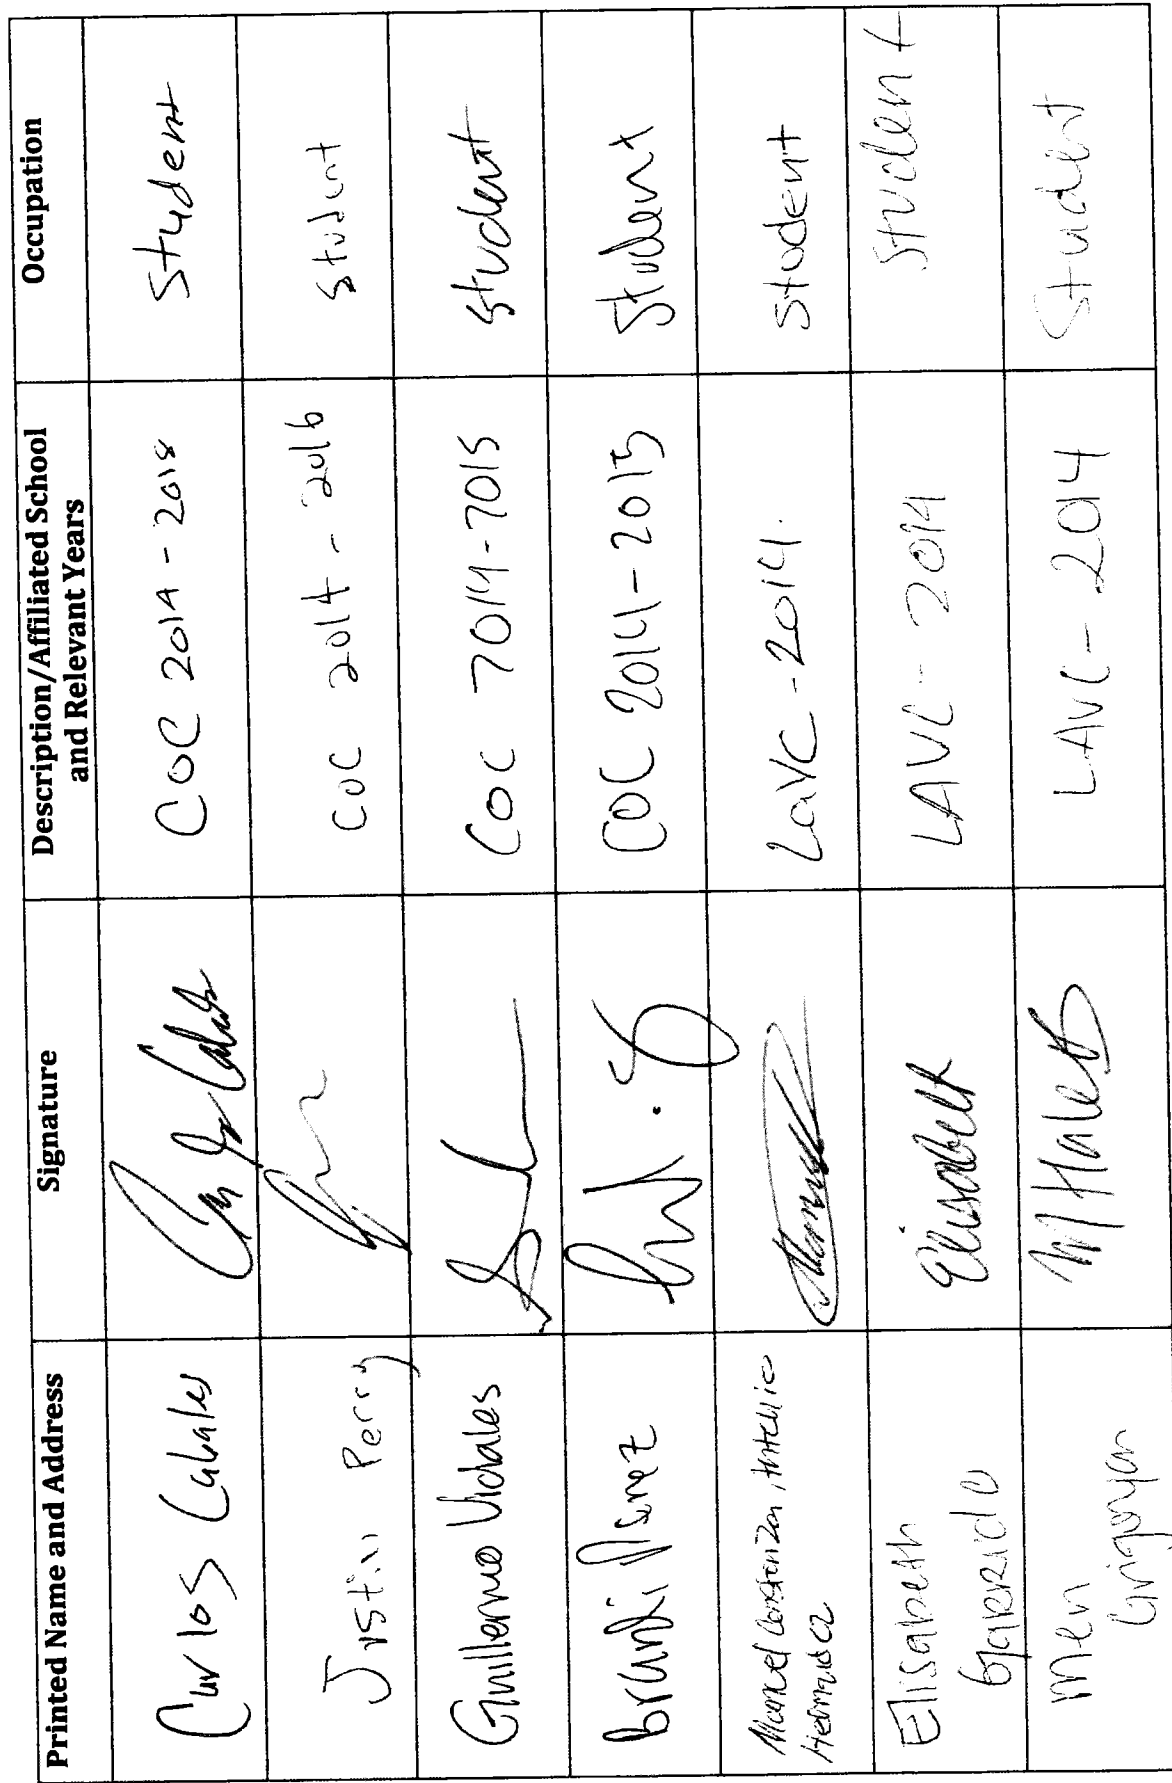 Printed Name and Address Signature Description/Affiliated School and Relevant Years Occupation
Carlos Cabales COC 2014 - 2018 Student
Justin Perry COC 2014 - 2016 Student
Guillermo Vidales COC 2014-2015 Student
COC 2014-2015 Student
LaVC - 2014. Student
Elisabeth Garrido Elisabeth LAVC - 2014 Student
Grigoryan LAVC - 2014 Student